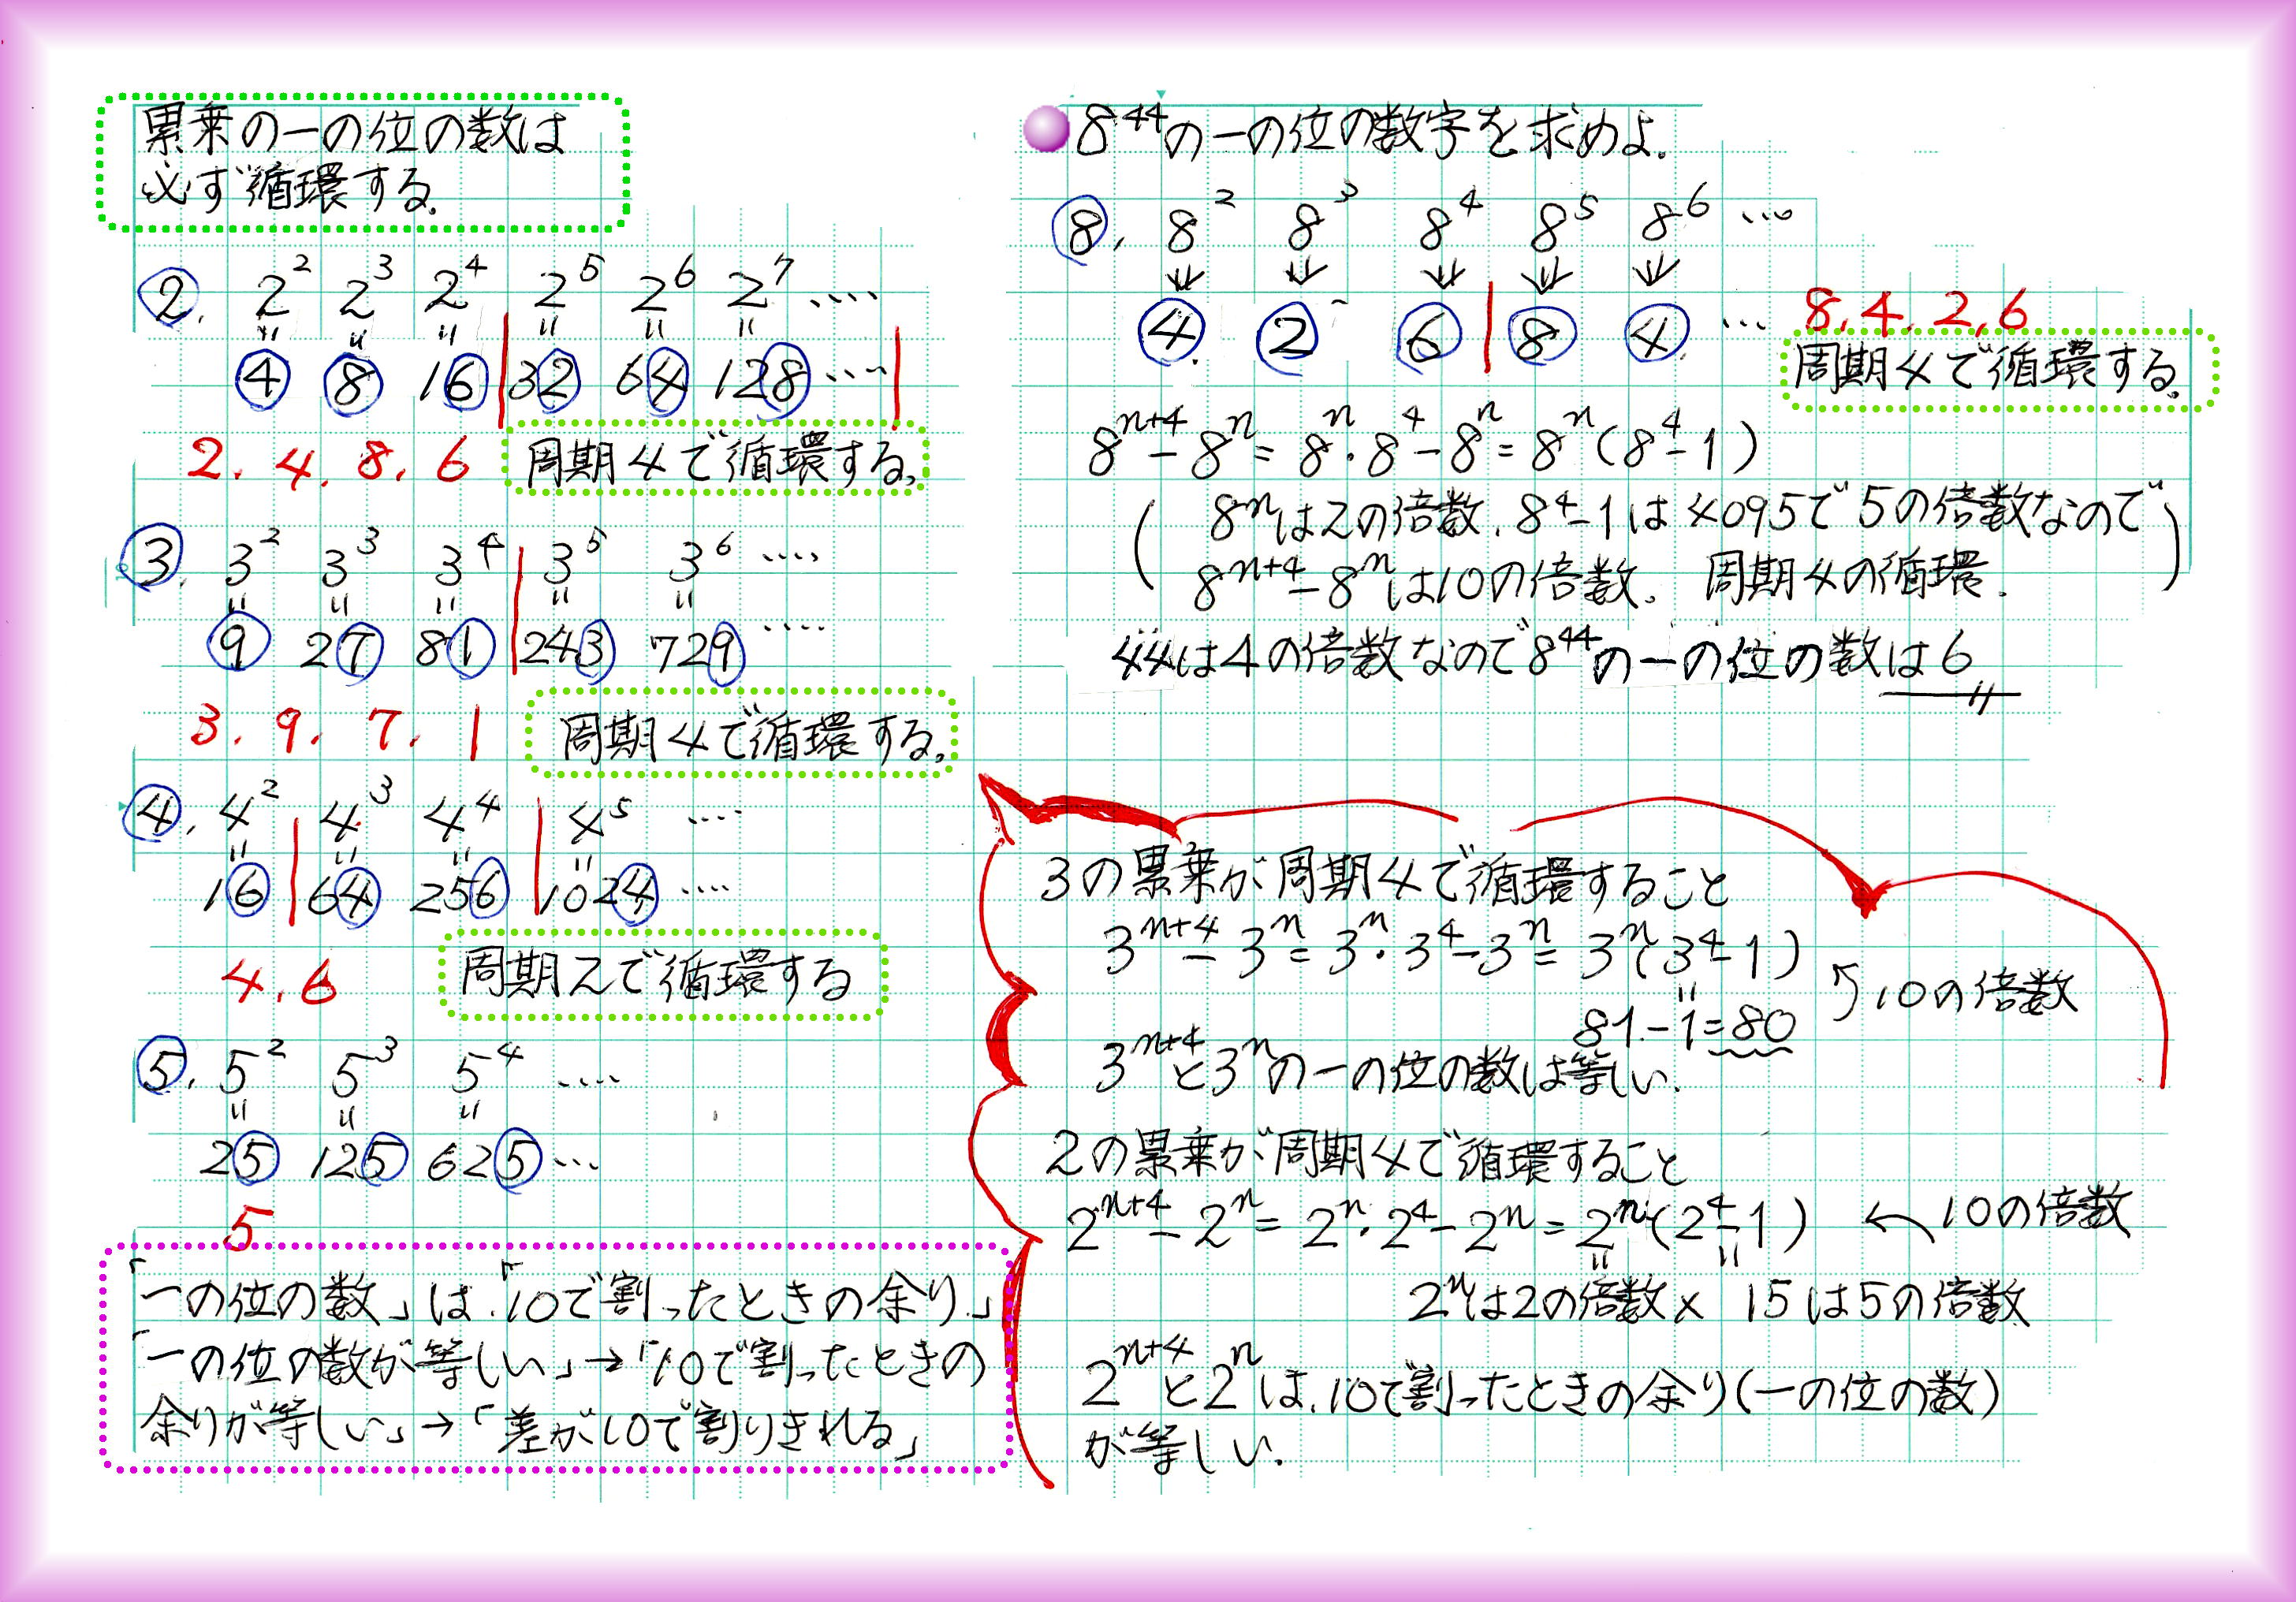 累乗の一の位の数は
必ず循環する.
2, 2² 2³ 2⁴ 2⁵ 2⁶ 2⁷ ....
= = = = = =
4 8 16 32 64 128 ....
2. 4. 8. 6 周期4で循環する。
3. 3² 3³ 3⁴ 3⁵ 3⁶ ....
= = = = =
9 27 81 243 729 ....
3. 9. 7. 1 周期4で循環する。
4, 4² 4³ 4⁴ 4⁵ ....
= = = =
16 64 256 1024 ....
4. 6 周期2で循環する
5. 5² 5³ 5⁴ ....
= = =
25 125 625 ...
5
「一の位の数」は「10で割ったときの余り.」
「一の位の数が等しい」→「10で割ったときの
余りが等しい」→「差が10で割りきれる」
8⁴⁴の一の位の数字を求めよ.
8, 8² 8³ 8⁴ 8⁵ 8⁶ ...
↓ ↓ ↓ ↓ ↓
4. 2 6 8 4. ... 8. 4. 2. 6
周期4で循環する。
8ⁿ⁺⁴-8ⁿ=8ⁿ・8⁴-8ⁿ=8ⁿ(8⁴-1)
(8ⁿは2の倍数. 8⁴-1は4095で5の倍数なので
8ⁿ⁺⁴-8ⁿは10の倍数。 周期4の循環.)
44は4の倍数なので8⁴⁴の一の位の数は6
3の累乗が周期4で循環すること
3ⁿ⁺⁴-3ⁿ=3ⁿ・3⁴-3ⁿ=3ⁿ(3⁴-1)
=
10の倍数
81-1=80
3ⁿ⁺⁴と3ⁿの一の位の数は等しい.
2の累乗が周期4で循環すること
2ⁿ⁺⁴-2ⁿ=2ⁿ・2⁴-2ⁿ=2ⁿ(2⁴-1) ← 10の倍数
= =
2ⁿは2の倍数 × 15は5の倍数
2ⁿ⁺⁴と2ⁿは.10で割ったときの余り(一の位の数)
が等しい.